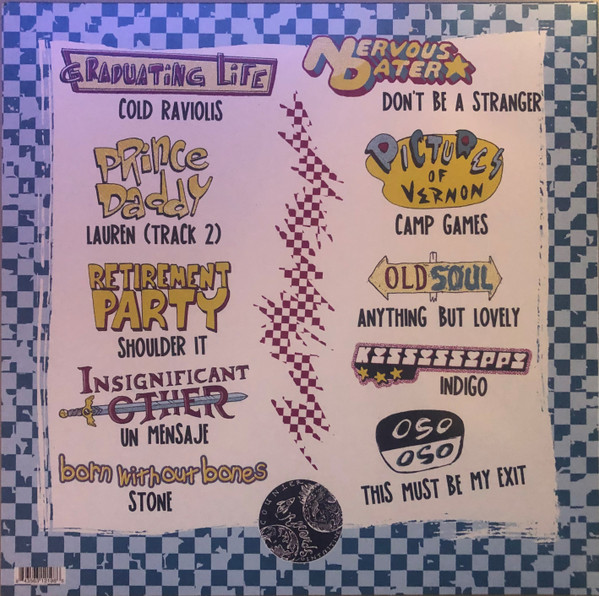 GRADUATING LIFE
COLD RAVIOLIS
PRINCE
DADDY
LAUREN (TRACK 2)
RETIREMENT
PARTY
SHOULDER IT
INSIGNIFICANT
OTHER
UN MENSAJE
born without bones
STONE
NERVOUS
DATER
DON'T BE A STRANGER
PICTURES
OF
VERNON
CAMP GAMES
OLD SOUL
ANYTHING BUT LOVELY
KISSISSIPPI
INDIGO
OSO
OSO
THIS MUST BE MY EXIT